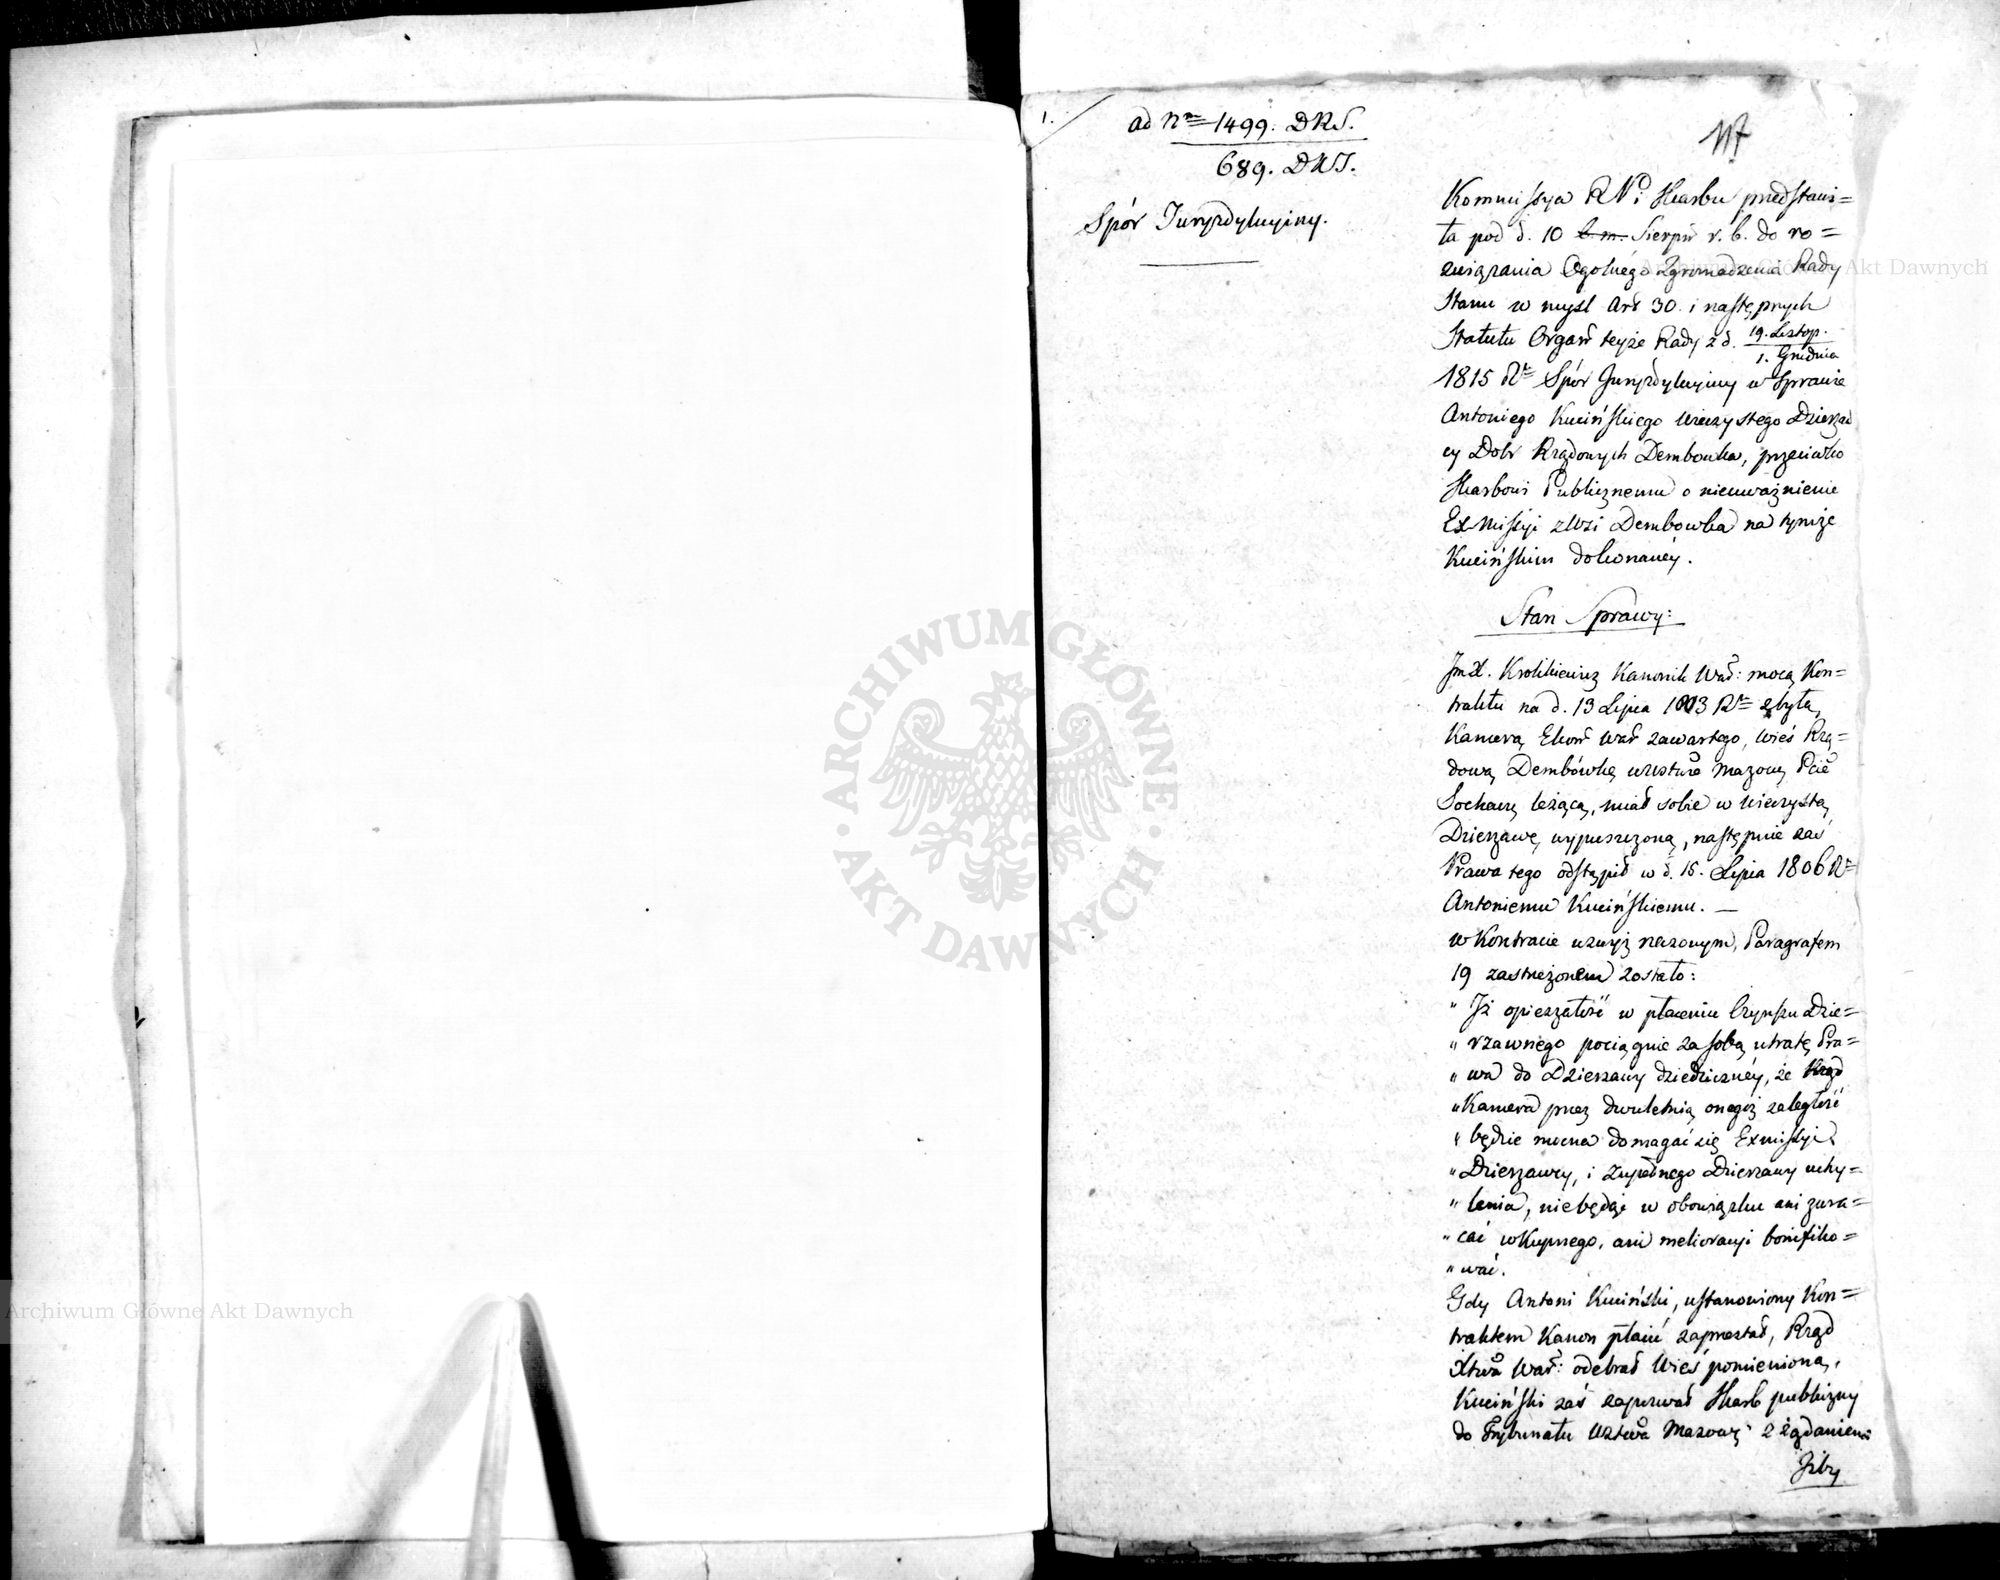 1.
ad Nm 1499. DRS.
689. DRS.
Spór Juryzdykcyiny.
Kommissya RP. i Skarbu przedstawi=
ła pod d. 10 b. m. Sierpń r. b. do ro=
związania Ogolnego Zgromadzenia Rady
Stanu w myśl Art 30. i następnych
Statutu Organ teyże Rady z d. 19. Listop. / 1. Grudnia
1815 Rr Spór Juryzdykcyiny w Sprawie
Antoniego Kucińskiego Wieczystego Dzierżaw
cy Dobr Rządowych Dembowka, przeciwko
Skarbowi Publicznemu o nieuważnienie
Exmissyi z Wsi Dembowka na tymże
Kucińskim dokonaney.
Stan Sprawy:
JmX. Krolikiewicz Kanonik War: mocą Kon=
traktu na d. 13 Lipca 1803 Rr z byłą
Kamerą Ekon War zawartego, Wieś Rzą=
dową Dembówkę w Wztwie Mazow: Pcie
Sochacz leżącą, miał sobie w wieczystą
Dzierżawę wypuszczoną, następnie zaś
Prawa tego odstąpił w d. 15. Lipca 1806 Rr
Antoniemu Kucińskiemu. —
w Kontrakcie wzwyż rzeczonym, Paragrafem
19 zastrzeżonem zostało:
" Iż opieszałość w płaceniu Czynszu Dzie=
" rzawnego pociągnie za sobą utratę Pra=
" wa do Dzierżawy dziedziczney, że Rząd
" Kamera przez dwuletnią onegoż zaległość
" będzie mocna domagać się Exmissyi
" Dzierżawcy, i zupełnego Dzierżawy uchy=
" lenia, nie będąc w obowiązku ani zwra=
" cać wkupnego, ani melioracyi bonifiko=
" wać.
Gdy Antoni Kuciński, ustanowiony Kon=
traktem Kanon płacić zaprzestał, Rząd
Xtwa War: odebrał Wieś pomienioną,
Kuciński zaś zapozwał Skarb publiczny
do Trybunału Wztwa Mazow: z żądaniem
Iżby
Archiwum Główne Akt Dawnych
Archiwum Główne Akt Dawnych
ARCHIWUM GŁÓWNE · AKT DAWNYCH ·